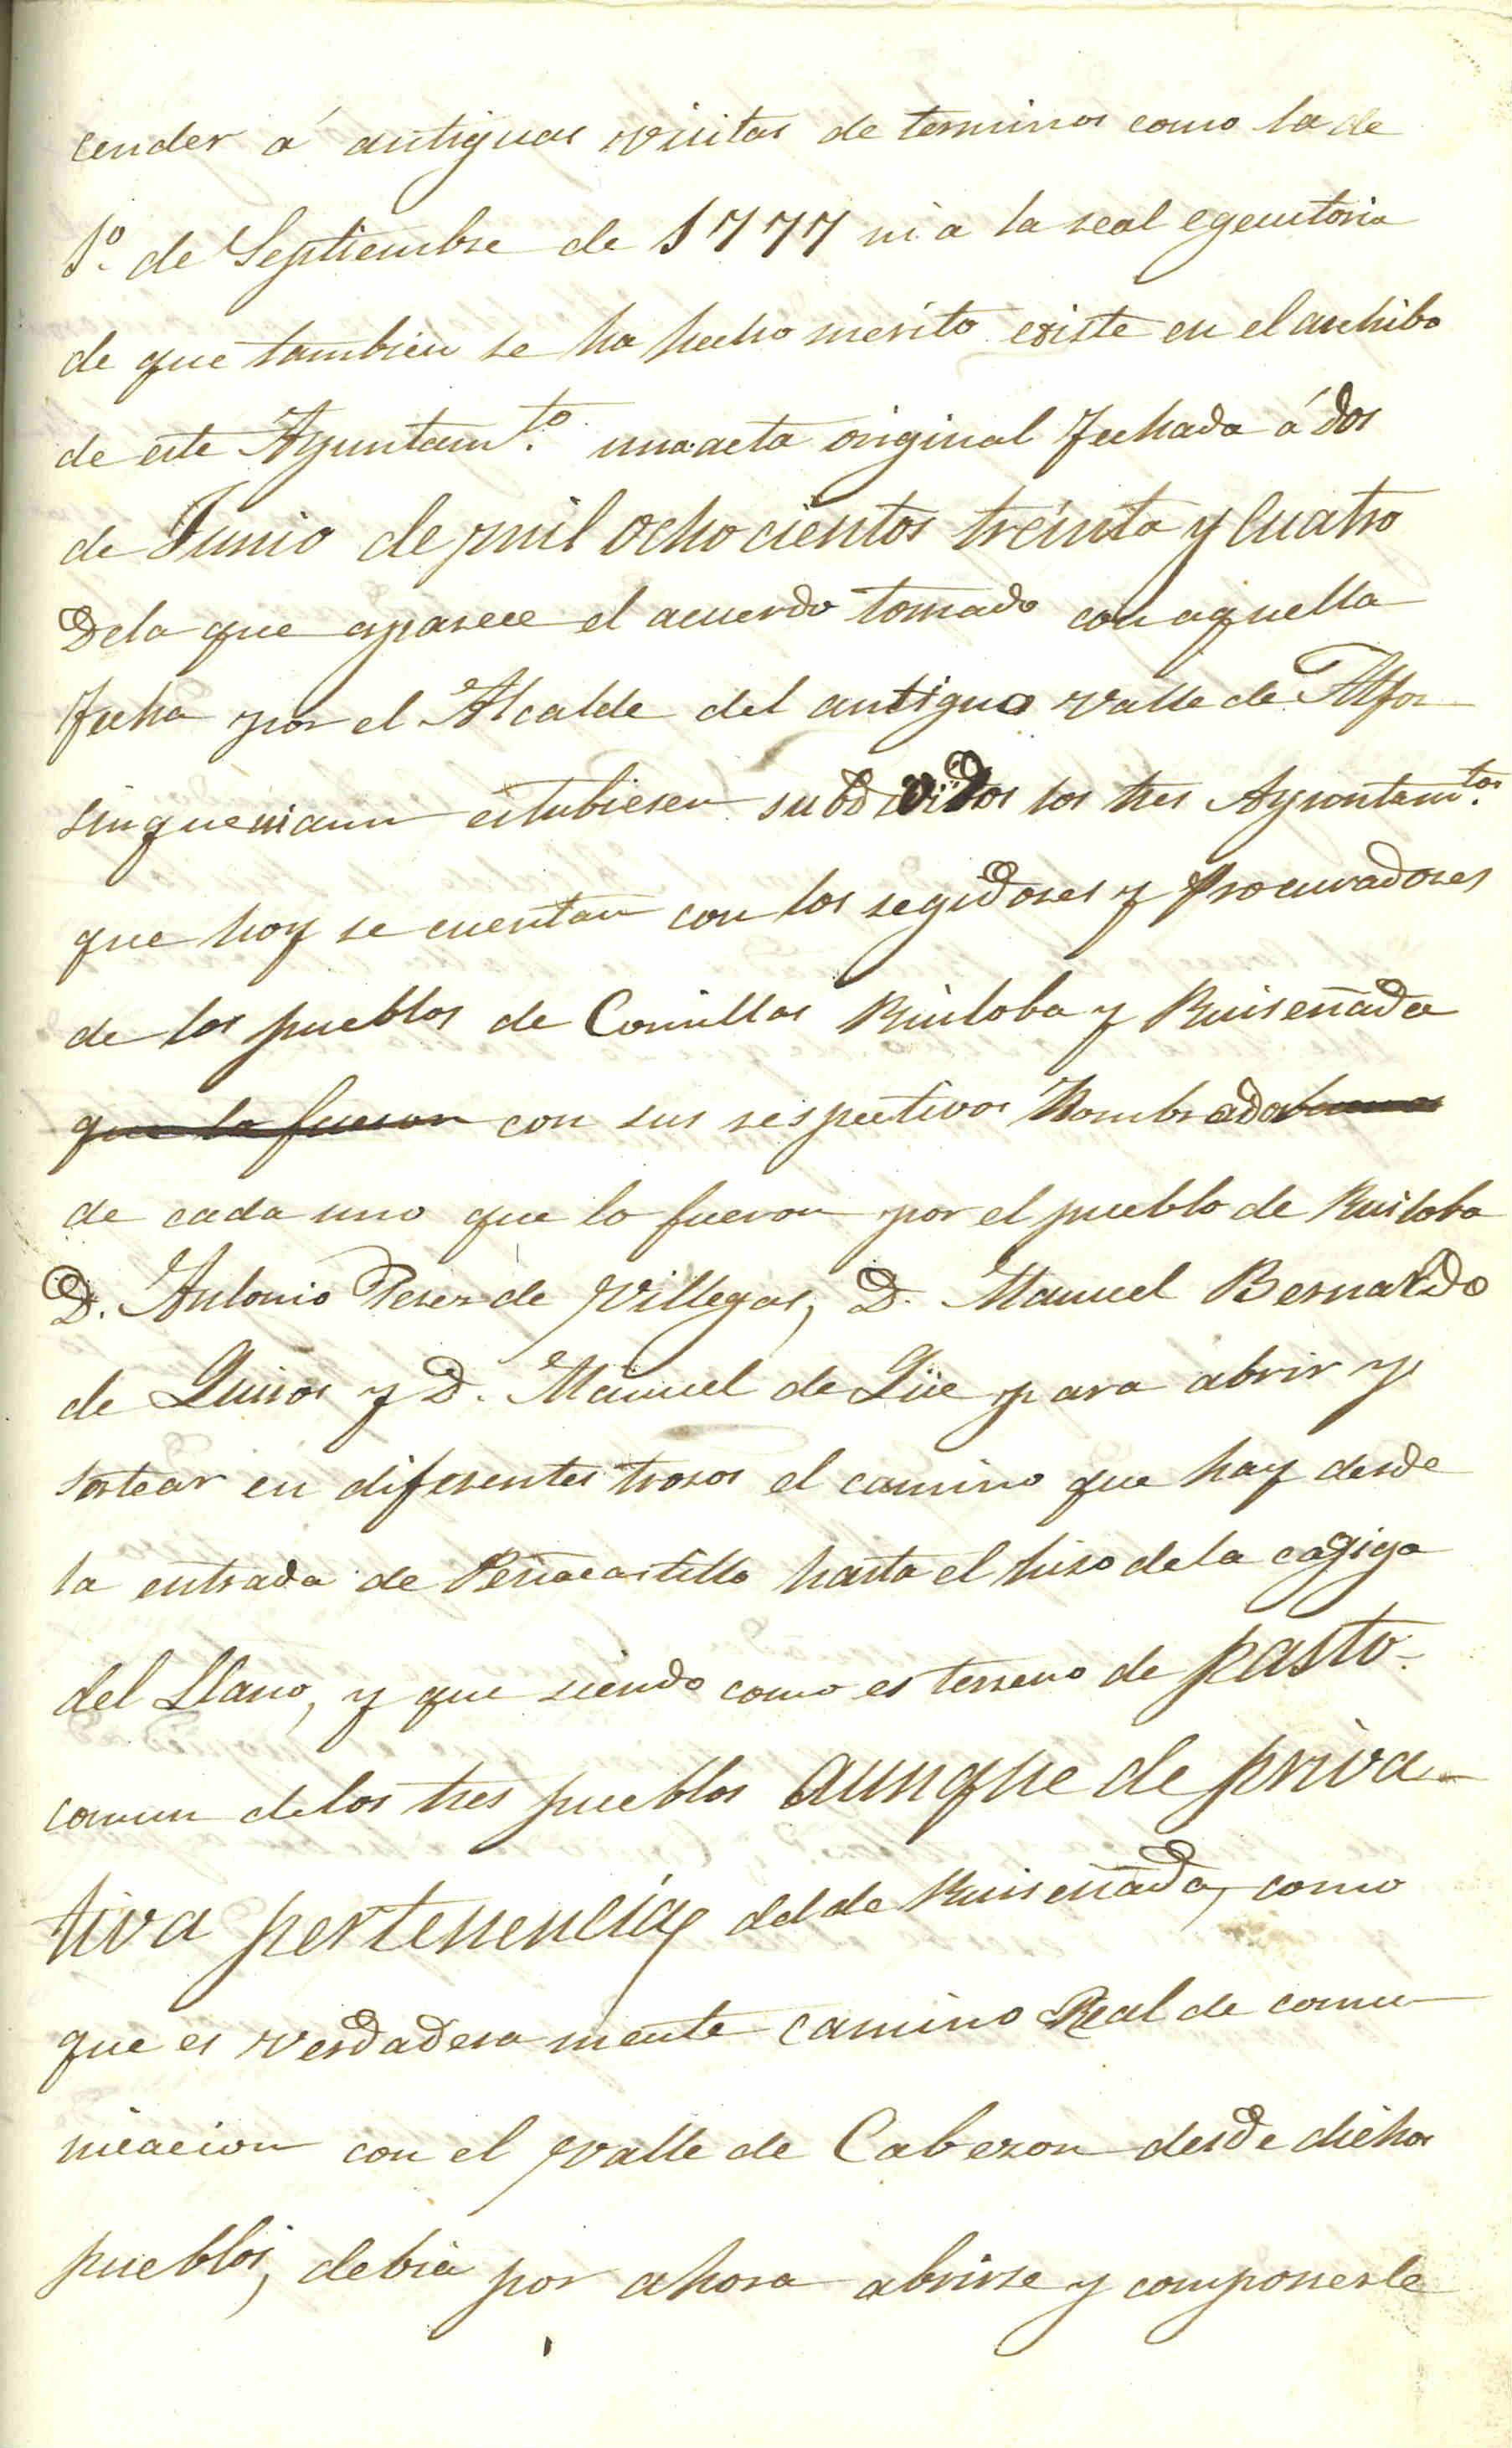 cender á antiguas visitas de terminos como la de
1º. de Septiembre de 1777 ni a la real egecutoria
de que tambien se ha hecho merito existe en el archibo
de este Ayuntamto. una acta original fechada á dos
de Junio de mil ochocientos treinta y cuatro
De la que aparece el acuerdo tomado con aquella
fecha por el Alcalde del antiguo valle de Alfoz
sin que ni aun estubiesen subdividos los tres Ayuntamtos.
que hoy se cuentan con los regidores y Procuradores
de los pueblos de Comillas Ruiloba y Ruiseñada
que lo fueron con sus respectivos Nombrados
de cada uno que lo fueron por el pueblo de Ruiloba
D. Antonio Perez de Villegas, D. Manuel Bernardo
de Quiros y D. Manuel de Qüe para abrir y
sortear en diferentes trozos el camino que hay desde
la entrada de Peñacastillo hasta el hiso de la cagiga
del Llano, y que siendo como es terreno de pasto
comun de los tres pueblos aunque de priva-
tiva pertenencia del de Ruiseñada, como
que es verdaderamente camino Real de comu-
nicacion con el valle de Cabezon desde dichos
pueblos, debia por ahora abrirse y componerle